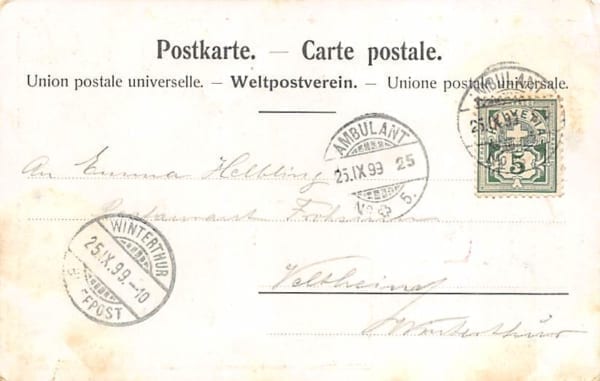 Postkarte. — Carte postale.
Union postale universelle. — Weltpostverein. — Unione postale universale.
AMBULANT
25.IX.99
5
A
AMBULANT
25.IX.99 25
No 5.
An Emma Helbling
Restaurant
WINTERTHUR
25.IX.99.-10
BRIEFPOST
Veltheim
Winterthur